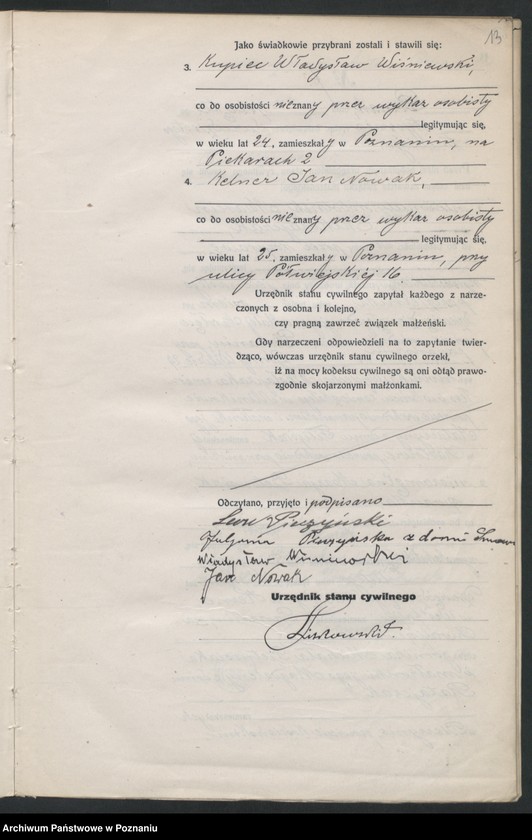 13
Jako świadkowie przybrani zostali i stawili się:
3. Kupiec Władysław Wiśniewski,
co do osobistości nieznany przez wykaz osobisty
legitymując się,
w wieku lat 24, zamieszkały w Poznaniu, na
Piekarach 2
4. Kelner Jan Nowak,
co do osobistości nieznany przez wykaz osobisty
legitymując się,
w wieku lat 25, zamieszkały w Poznaniu, przy
ulicy Półwiejskiéj 16.
Urzędnik stanu cywilnego zapytał każdego z narze-
czonych z osobna i kolejno,
czy pragną zawrzeć związek małżeński.
Gdy narzeczeni odpowiedzieli na to zapytanie twier-
dząco, wówczas urzędnik stanu cywilnego orzekł,
iż na mocy kodeksu cywilnego są oni odtąd prawo-
zgodnie skojarzonymi małżonkami.
Odczytano, przyjęto i podpisano
z domu
Władysław Wiśniewski
Jan Nowak
Urzędnik stanu cywilnego
Archiwum Państwowe w Poznaniu